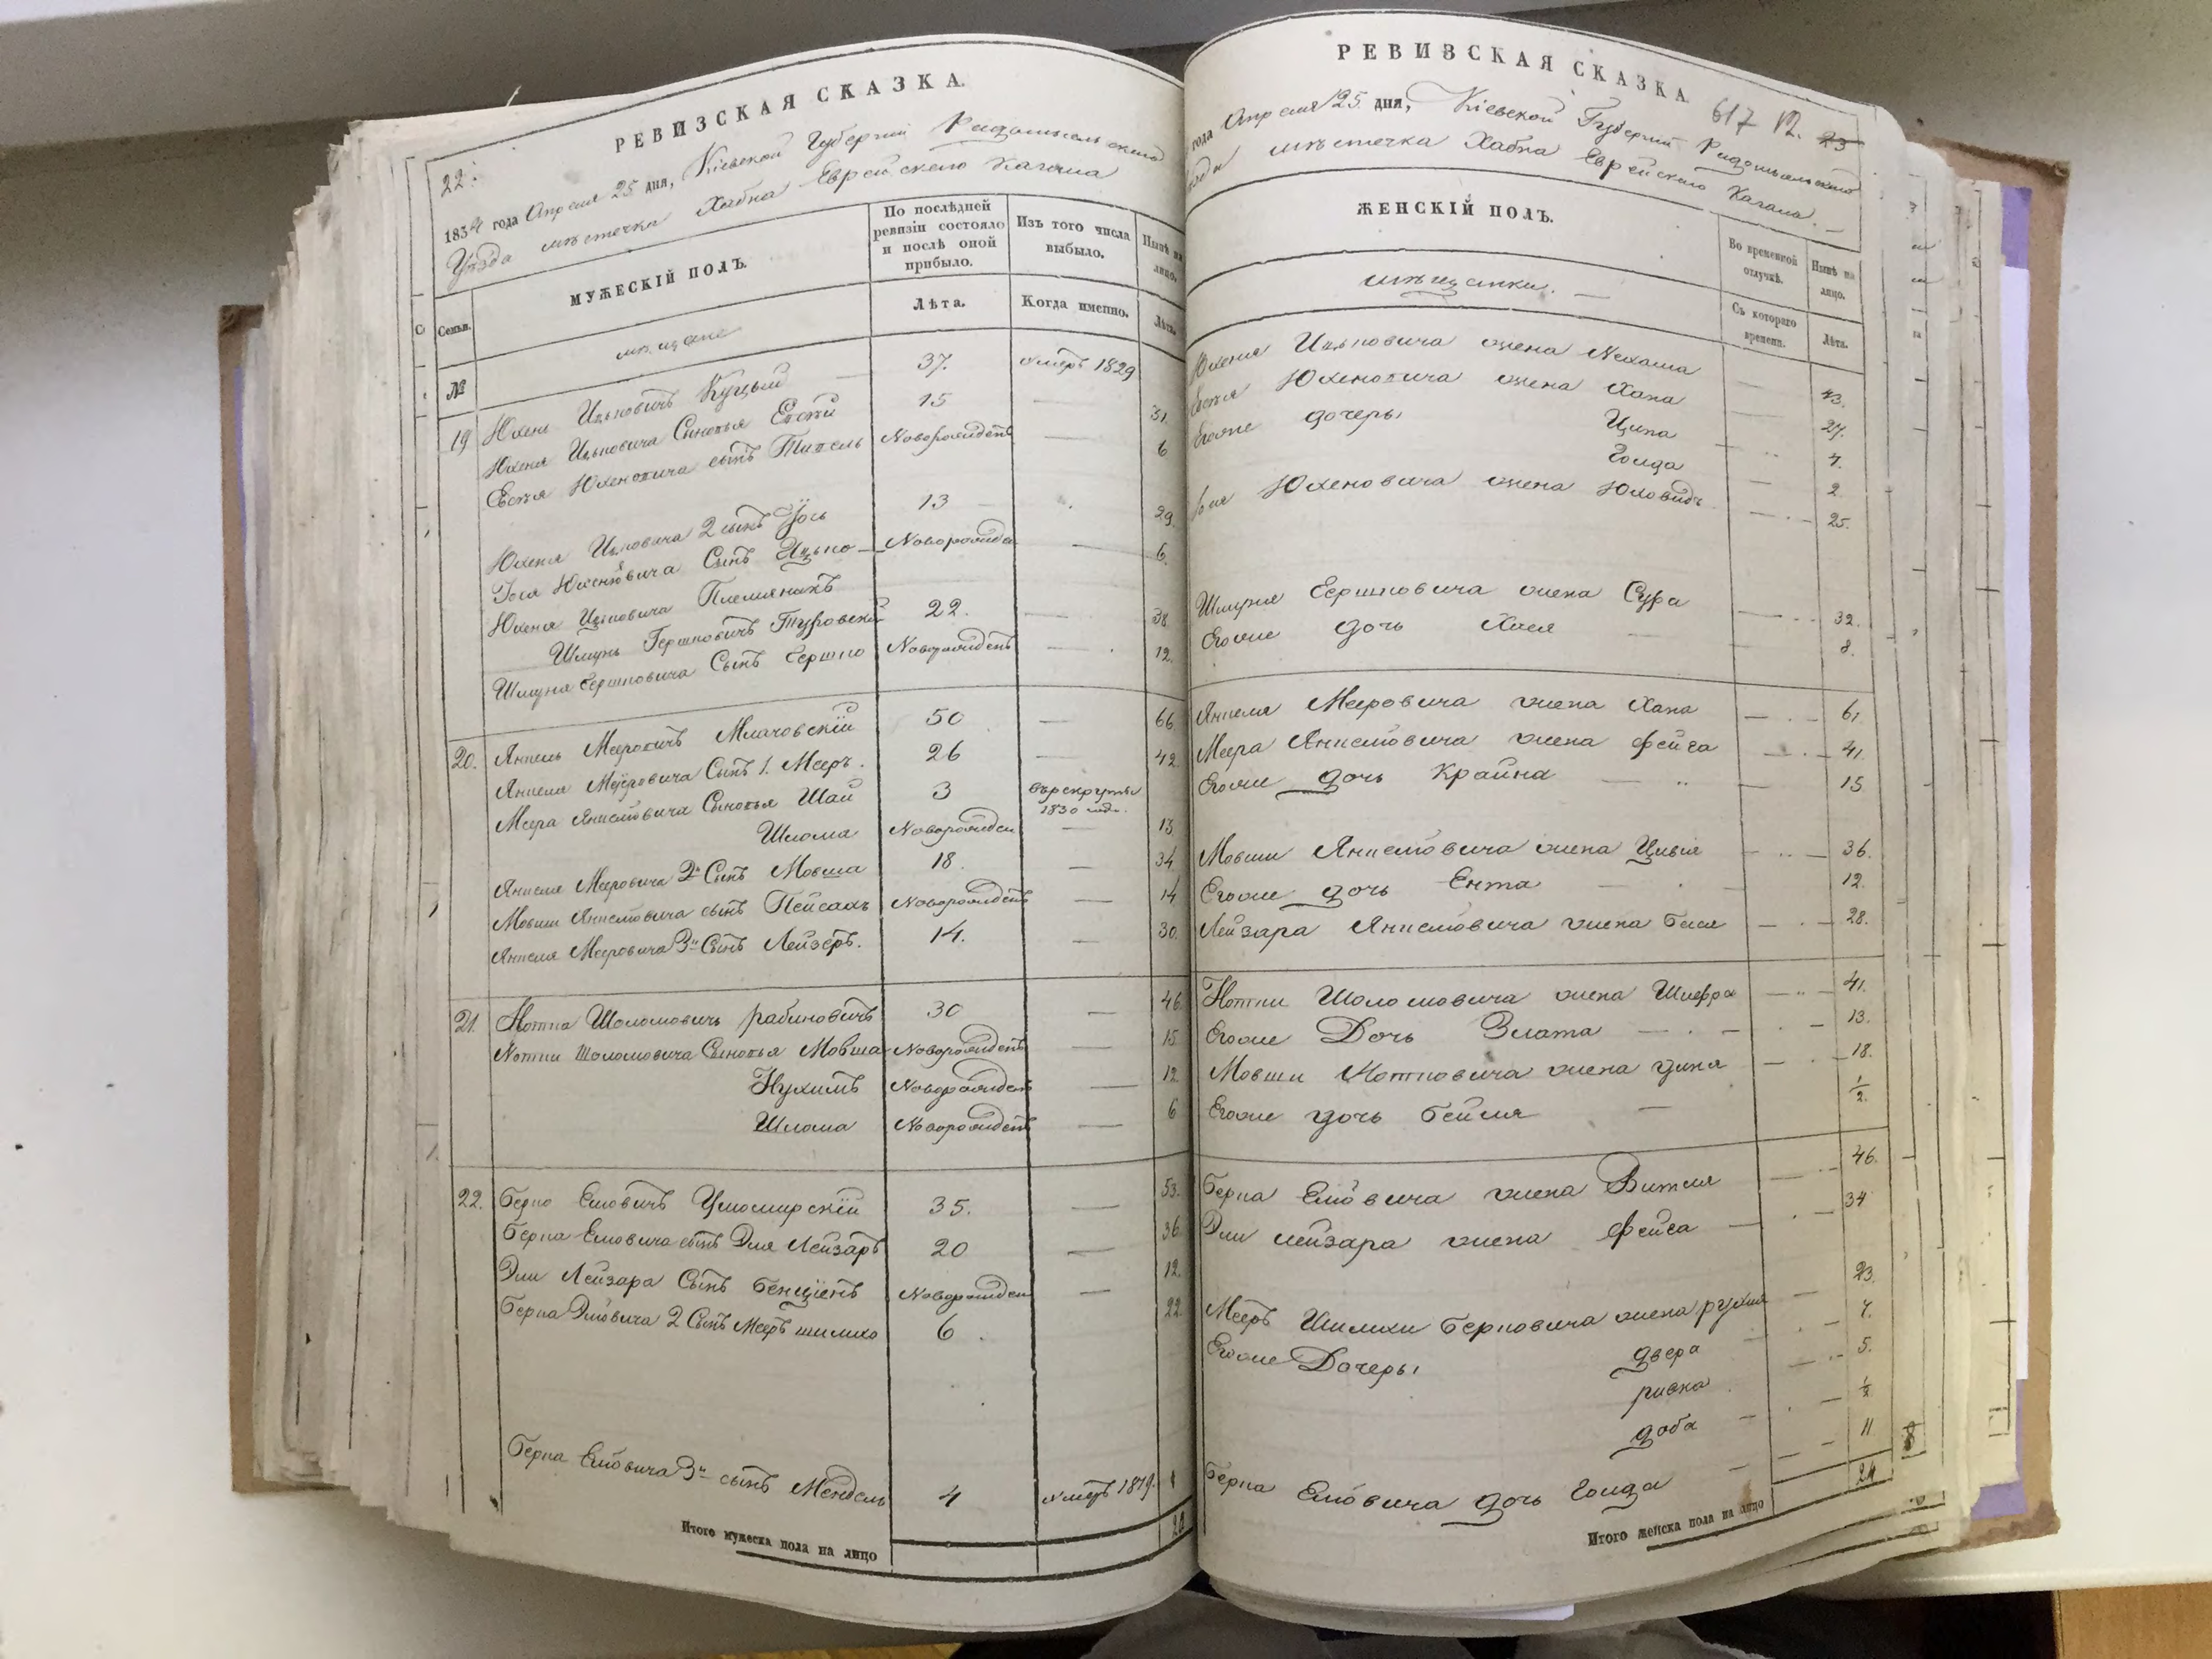 РЕВИЗСКАЯ СКАЗКА.
22.
1834 года Апреля 25 дня, Кіевской Губерніи Радомысльскаго
Уѣзда мѣстечка Хабна Еврейскаго Кагала
Семьи.
МУЖЕСКІЙ ПОЛЪ.
По послѣдней ревизіи состояло и послѣ оной прибыло.
Изъ того числа выбыло.
Нынѣ на лицо.
№
мѣщане
Лѣта.
Когда именно.
Лѣта.
19 Юхень Ицьковичъ Куцый 37. умеръ 1829
Юхеня Ицьковича Сыновья 15 — 31.
Юхеновича сынъ Новорожденъ — 6
Юхеня Ицковича 2 сынъ 13 29.
Іося Юхеновича Сынъ Ицько Новорожден — 6.
Юхеня Ицковича Племянникъ
Шмунь Гершковичъ Туровскій 22. — 38
Шмуня Гершковича Сынъ Гершко Новорожденъ — 12.
20. Анкель Мееровичъ 50 — 66
Анкеля Мееровича Сынъ 1. Мееръ. 26 — 42
Меера Анкелевича Сыновья Шаи 3 въ рекруты 1830 года.
Шлома Новорожден — 13
Анкеля Мееровича 2й Сынъ Мовша 18. — 34
Мовши Анкелевича сынъ Пейсахъ Новорожденъ — 14
Анкеля Мееровича 3й Сынъ Лейзеръ. 14. — 30.
21. Нотка Шоломовичъ рабиновичъ 30 — 46.
Нотки Шоломовича Сыновья Мовша Новорожденъ 15
Нухимъ Новорожден — 12
Шлома Новорожденъ — 6
22. Берко Елевичъ 35. — 53.
Берка Елевича сынъ Эля Лейзаръ 20 — 36
Эли Лейзара Сынъ Бенціенъ Новорожден — 12.
Берка Элевича 2 Сынъ Мееръ шлиомо 6. 22.
Берка Елевича 3й сынъ Мендель 4 умеръ 1819.
Итого мужеска пола на лицо 20
РЕВИЗСКАЯ СКАЗКА.
617
23
года Апреля 25. дня, Кіевской Губерніи Радомысльскаго
мѣстечка Хабна Еврейскаго Кагала. —
ЖЕНСКІЙ ПОЛЪ.
Во временной отлучкѣ.
Нынѣ на лицо.
мѣщанки. —
Съ котораго времени.
Лѣта.
Юхеня Ицьковича жена Нехама — 43.
Юхеновича жена Хана — 27.
Егоже дочеры Ципа — 4.
Голда — 2
Юхеновича жена Юховидъ — 25.
Шмуня Гершковича жена Сура — 32.
Егоже дочь Хася — 8.
Анкеля Мееровича жена Хана — 61
Меера Анкелевича жена фейга — 41.
Егоже дочь Крайна — 15
Мовши Анкелевича жена Цивія — 36.
Егоже дочь Ента — 12.
Лейзара Анкелевича жена Бася — 28.
Нотки Шоломовича жена Шифра — 41.
Егоже Дочь Злата — 13.
Мовши Нотковича жена Ципа — 18.
Егоже дочь Бейля — ½.
Берка Елевича жена — 46.
Эли лейзара жена фейга — 34
Мееръ Шлиомы Берковича жена рухля — 23.
Егоже Дочеры двера 7.
ривка 5.
доба ½
Берка Елевича дочь Голда 11
Итого женска пола на лицо 24